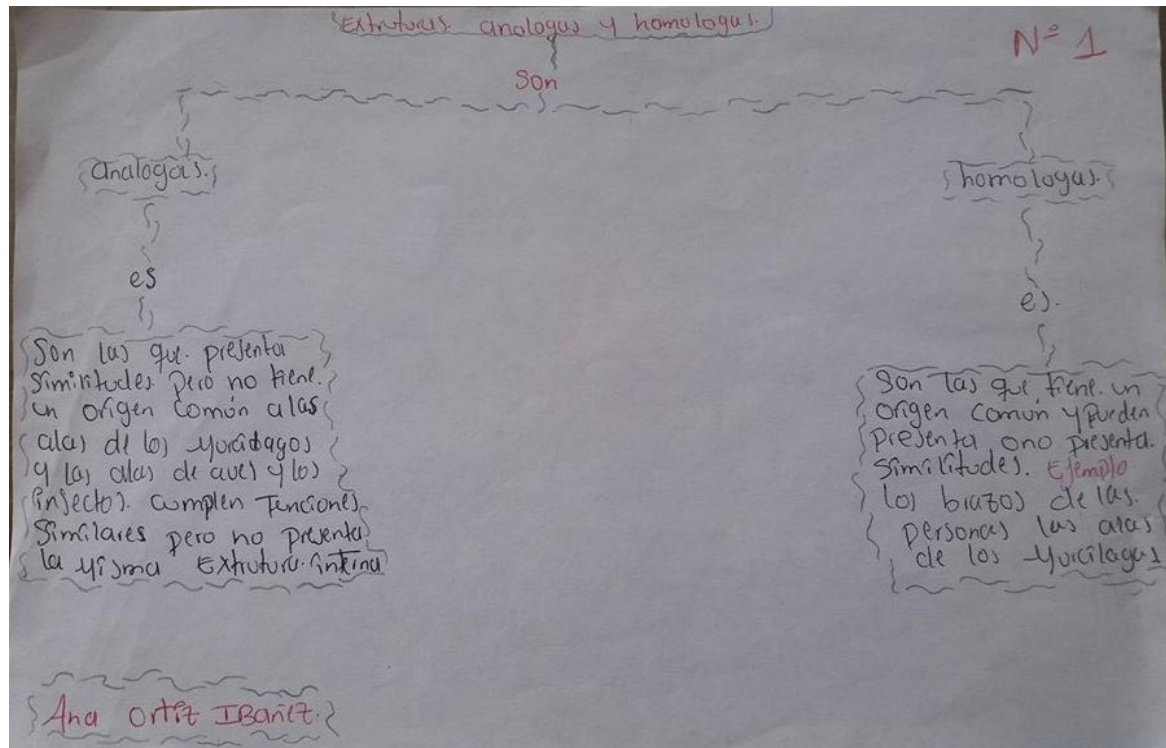 Extruturas analogas y homologas.
Nº 1
Son
analogas.
homologas.
es
es.
Son las que presenta
similitudes pero no tiene.
un origen común alas
alas de los Murcidagos
y las alas de aves y los
insectos. cumplen Funciones
similares pero no presenta
la misma Extrutura interna
Son las que tiene un
origen común y pueden
presenta ono presenta.
similitudes. Ejemplo.
los brazos de las.
personas las alas
de los Murcilagos
Ana Ortiz IBañez.